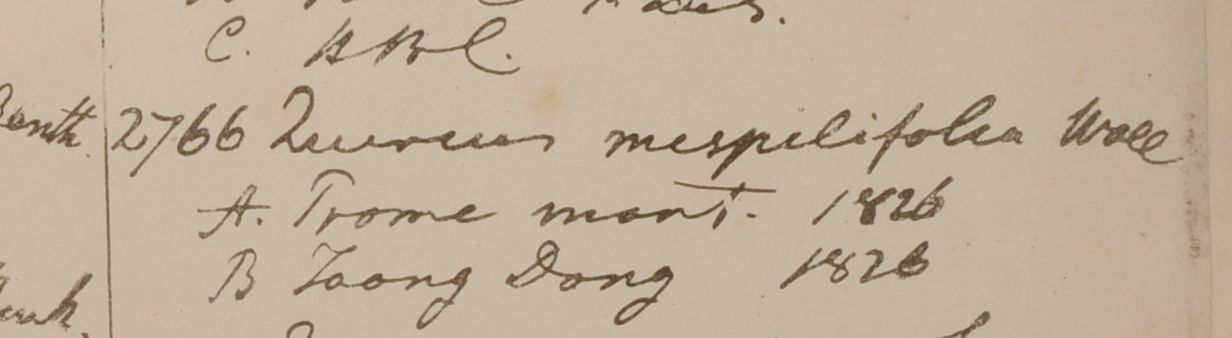 C. HBC.
Benth. 2766 Quercus mespilifolia Wall
A. Prome mont. 1826
B Taong Dong 1826